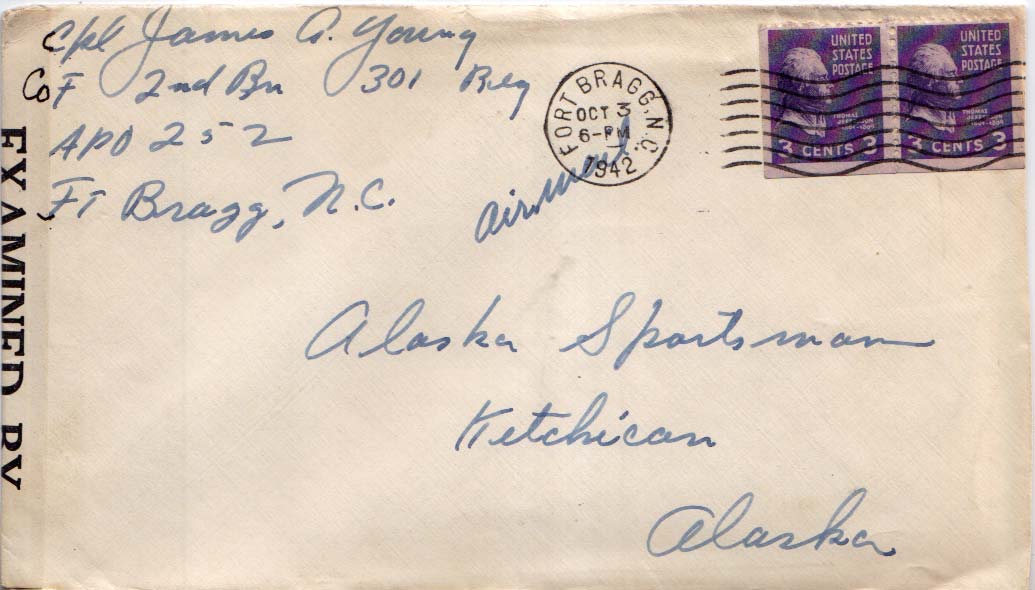 Cpl James A. Young
Co F 2nd Bn 301 Reg
APO 252
Ft Bragg, N.C.
FORT BRAGG, N.C.
OCT 3
6-PM
1942
airmail
UNITED
STATES
POSTAGE
THOMAS
JEFFERSON
1801-1809
3 CENTS 3
UNITED
STATES
POSTAGE
THOMAS
JEFFERSON
1801-1809
3 CENTS 3
EXAMINED BY
Alaska Sportsman
Ketchican
Alaska